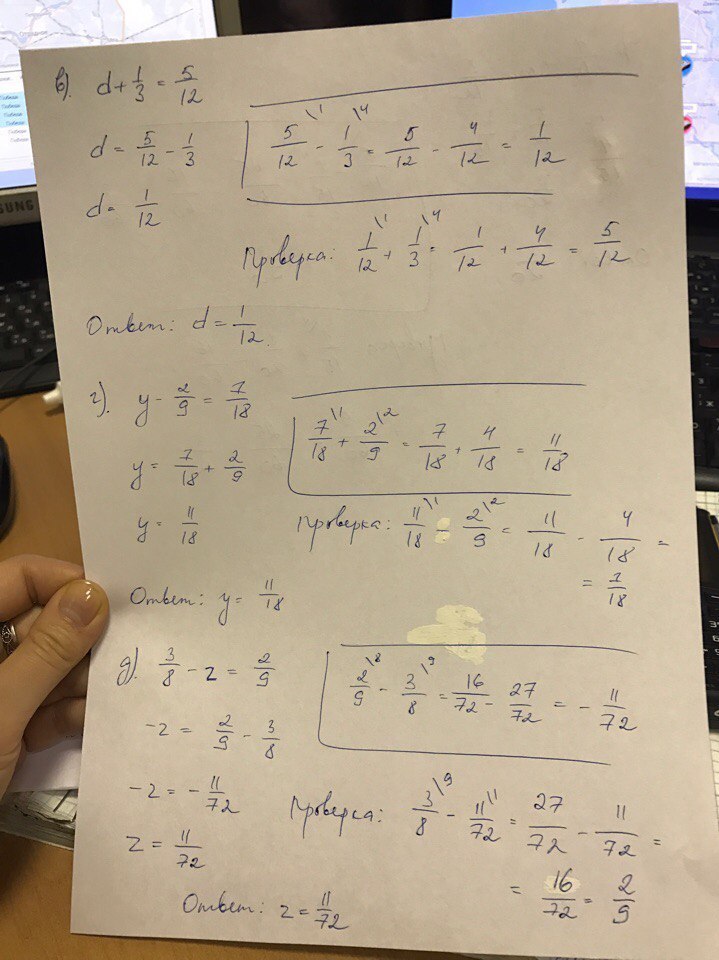 в). d + 1/3 = 5/12
d = 5/12 - 1/3
5/12 \1 - 1/3 \4 = 5/12 - 4/12 = 1/12
d = 1/12
Проверка: 1/12 \1 + 1/3 \4 = 1/12 + 4/12 = 5/12
Ответ: d = 1/12.
г). y - 2/9 = 7/18
7/18 \1 + 2/9 \2 = 7/18 + 4/18 = 11/18
y = 7/18 + 2/9
y = 11/18
Проверка: 11/18 \1 - 2/9 \2 = 11/18 - 4/18 =
= 7/18
Ответ: y = 11/18
д). 3/8 - z = 2/9
2/9 \8 - 3/8 \9 = 16/72 - 27/72 = - 11/72
-z = 2/9 - 3/8
-z = - 11/72
Проверка: 3/8 \9 - 11/72 \1 = 27/72 - 11/72 =
z = 11/72
= 16/72 = 2/9
Ответ: z = 11/72
SAMSUNG
Победи
Победи
Победи
Победи
Победи